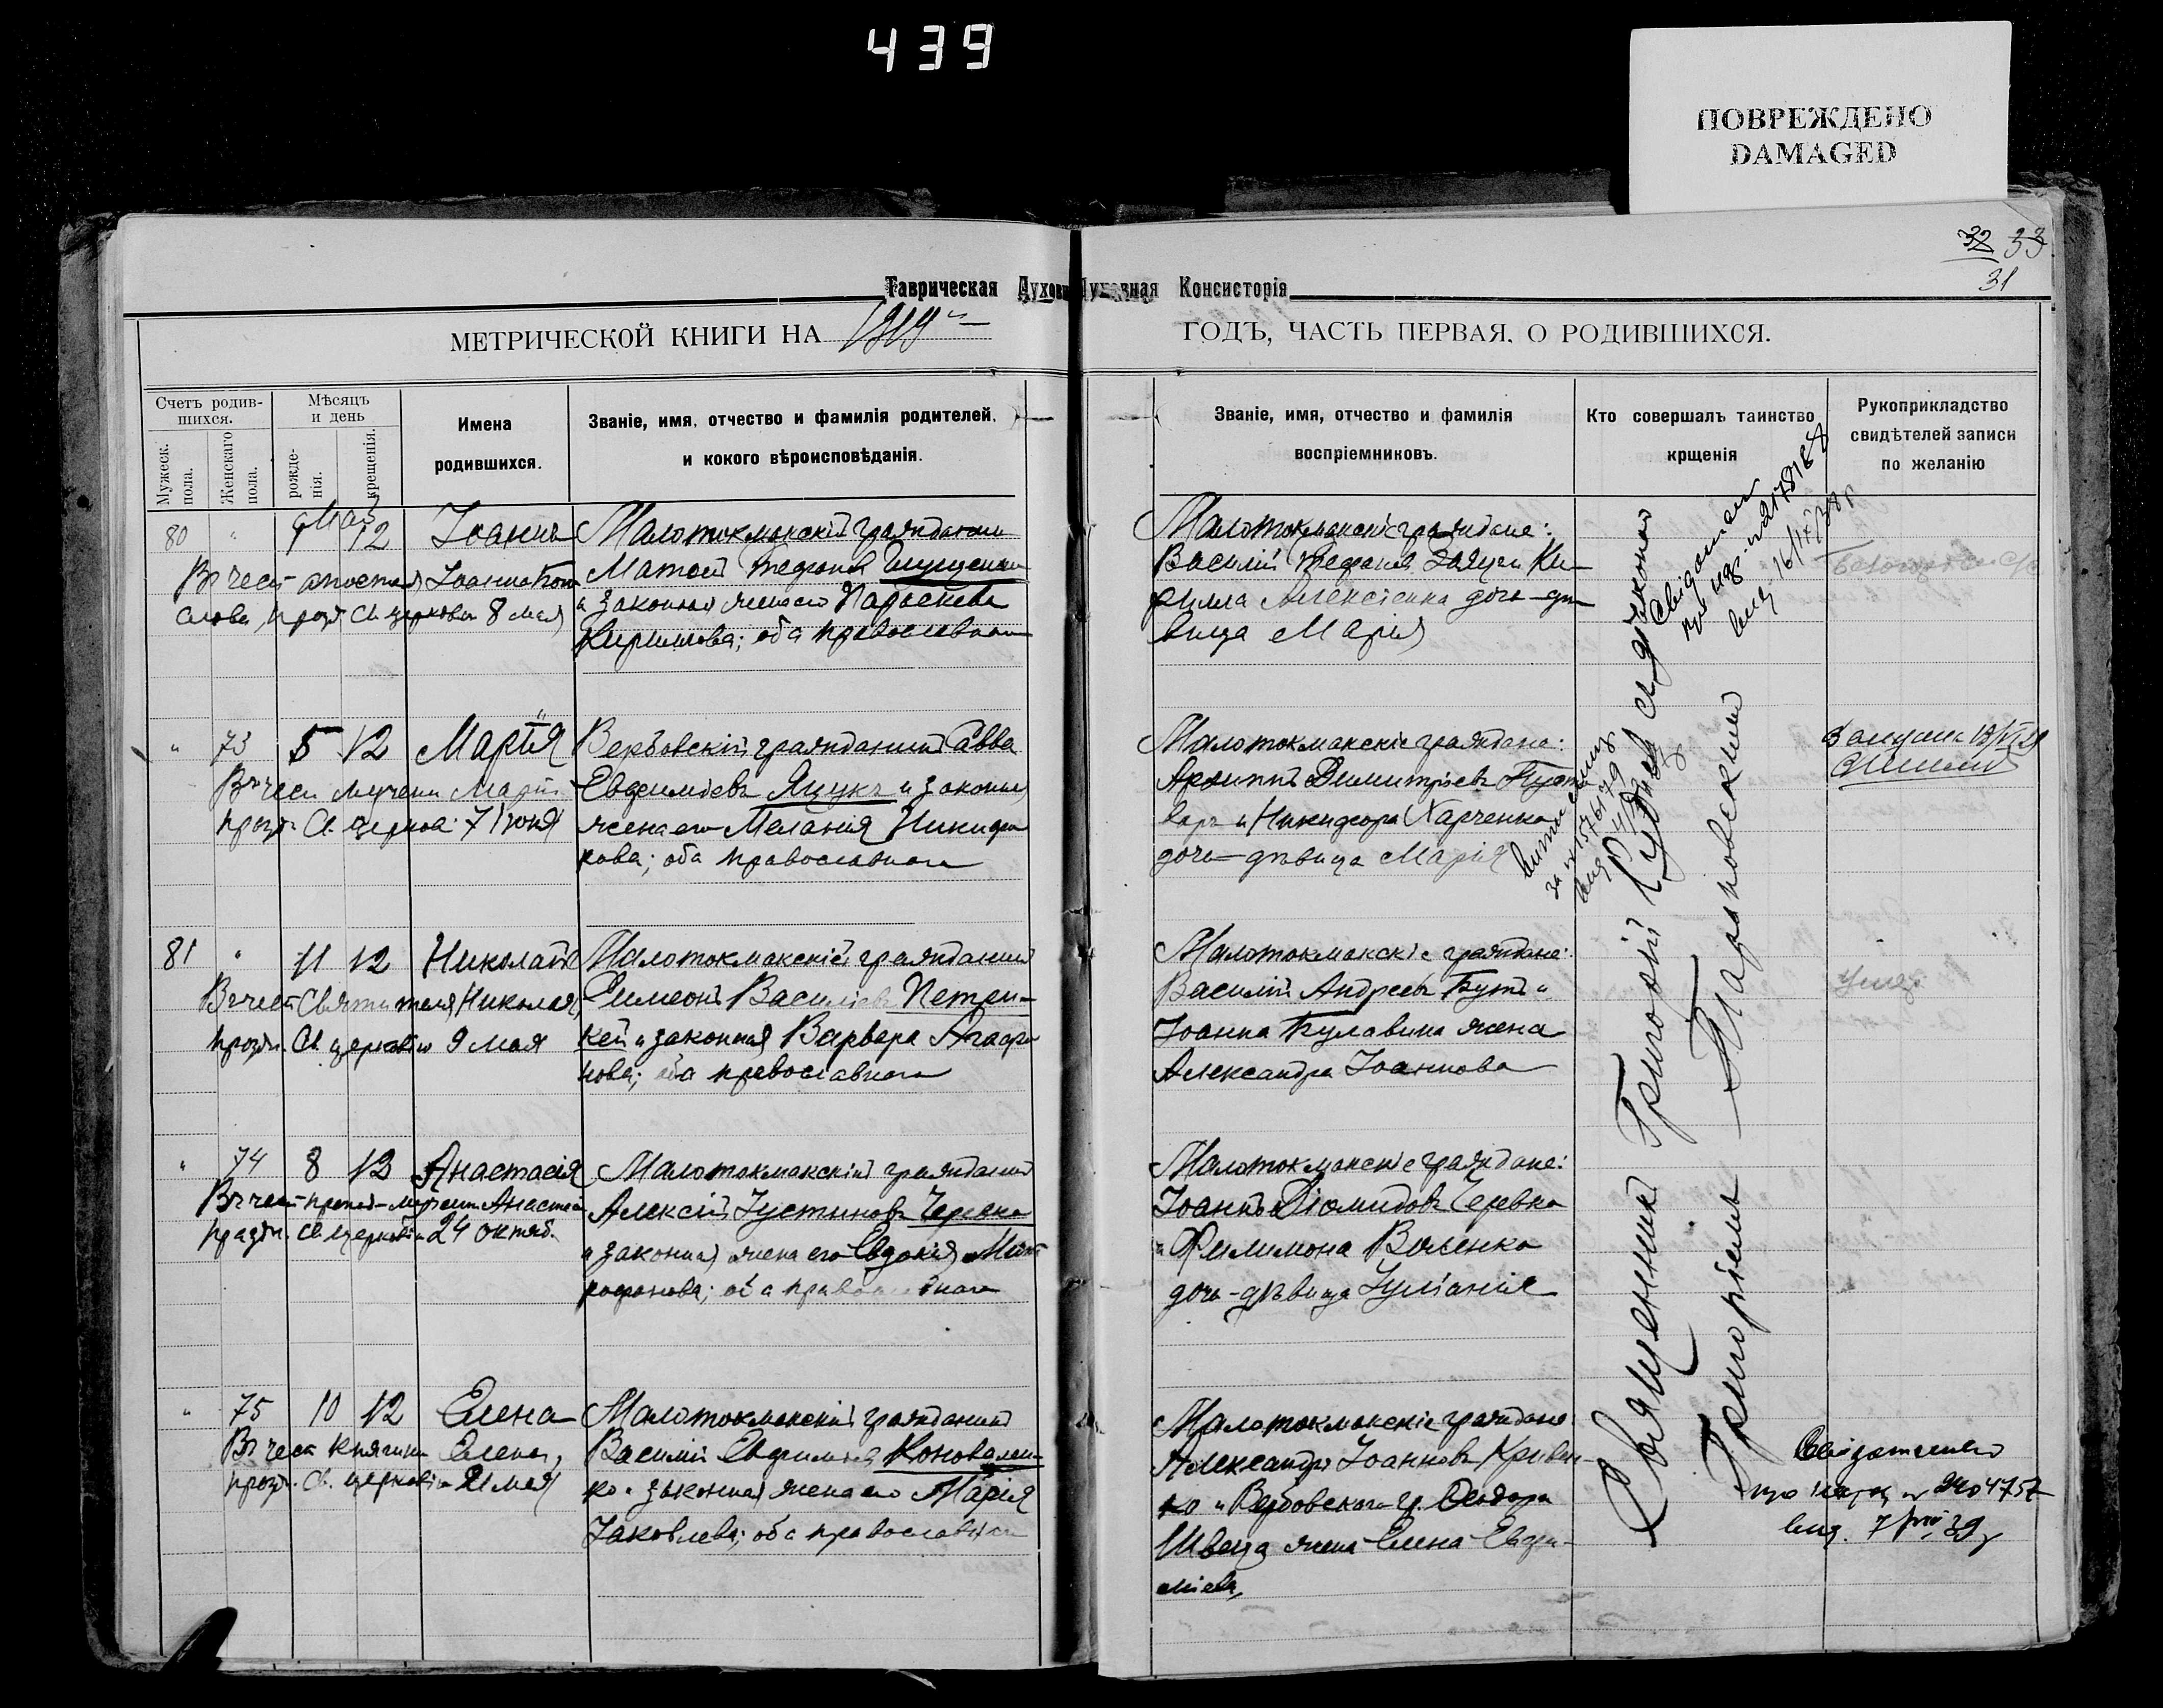 439
ПОВРЕЖДЕНО
DAMAGED
32 33
31
Таврическая Духовная Консисторія
МЕТРИЧЕСКОЙ КНИГИ НА 1919
ГОДЪ, ЧАСТЬ ПЕРВАЯ, О РОДИВШИХСЯ.
Счетъ родив-
шихся.
Мужеск. пола.
Женскаго пола.
Мѣсяцъ
и день
рожде-
нія.
крещенія.
Имена
родившихся.
Званіе, имя, отчество и фамилія родителей,
и кокого вѣроисповѣданія.
Званіе, имя, отчество и фамилія
воспріемниковъ.
Кто совершалъ таинство
крщенія
Рукоприкладство
свидѣтелей записи
по желанію
Май
80 " 9 12 Іоаннъ
Въ чест апостола Іоанна Бого
слова, празд Св. церковью 8 мая
Малотокмакскій гражданинъ
Матвей Стефановъ
и законная жена его Параскева
Кириллова; оба православнаго
Малотокмакскіе граждане:
Василій Стефановъ Заяцъ и Ки-
рилла Алексіенка дочь-дѣ
вица Марія
" 73 5 12 Марія
Въ чест мучени Маріи
празд. Св. церков. 7 Іюня
Вербовскій гражданинъ Савва
Евфиміевъ Яцукъ и законная
жена его Меланія Никифо
рова; оба православнаго
Малотокмакскіе граждане:
Архиппъ Димитріевъ
варь и Никифора Харченка
дочь-дѣвица Марія
81 " 11 12 Николай
Въ чест Святителя Николая,
празд. Св. церковію 9 мая
Малотокмакскій гражданинъ
Симеонъ Василіевъ Петрен-
кей и законная Варвара Агафо
нова; оба православнаго
Малотокмакскіе граждане:
Василій Андреевъ Бутъ и
Іоанна Булавина жена
Александра Іоаннова
" 74 8 12 Анастасія
Въ чест препод-мучени Анастасіи
праздн. Св. церковію 24 октяб.
Малотокмакскій гражданинъ
Алексій Іустиновъ Черевко
и законная жена его Евдокія Мит
рофанова; оба православнаго
Малотокмакскіе граждане:
Іоаннъ Діомидовъ Черевко
и Филимона Васенко
дочь-дѣвица Іуліанія
" 75 10 12 Елена
Въ чест княгини Елены,
празд. Св. церковію 21 мая
Малотокмакскій гражданинъ
Василій Евфиміевъ Коновален-
ко и законная жена его Марія
Іаковлева; оба православнаго
Малотокмакскіе граждане
Александръ Іоанновъ Кривен-
ко и Вербовскаго гр. Ѳеодора
Швеца жена Елена Евфи-
міева
Священникъ Григорій съ діакономъ
Григоріемъ Марковскимъ
Свідоцтво
про нар. №
вид. 16/IX 38 р
за № 1576179
вид
Умер
Свідоцтво
про нар. № 2404757
вид. 7/VIII 39 р